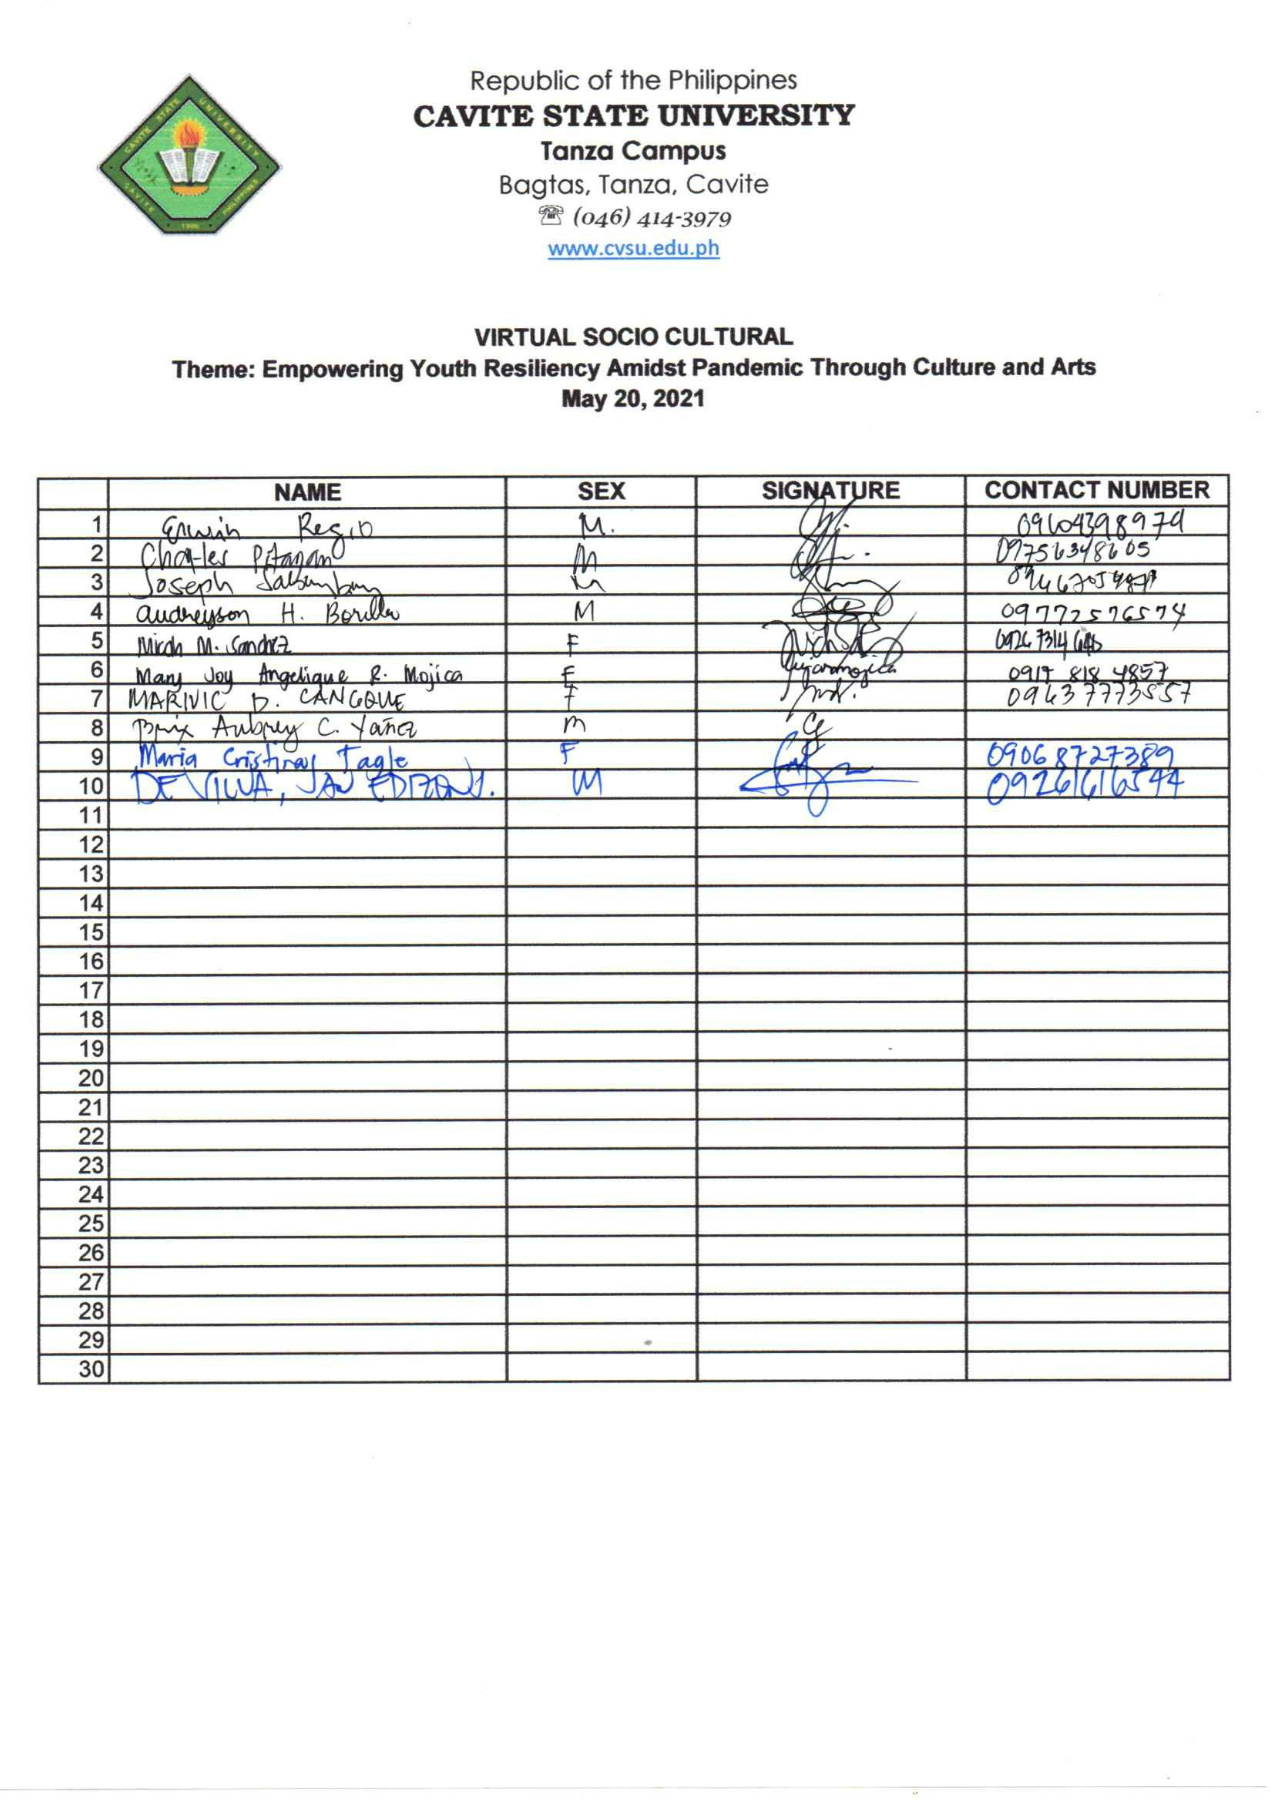 CAVITE STATE UNIVERSITY
CAVITE PHILIPPINES
1906
Republic of the Philippines
CAVITE STATE UNIVERSITY
Tanza Campus
Bagtas, Tanza, Cavite
☎ (046) 414-3979
www.cvsu.edu.ph
VIRTUAL SOCIO CULTURAL
Theme: Empowering Youth Resiliency Amidst Pandemic Through Culture and Arts
May 20, 2021
NAME SEX SIGNATURE CONTACT NUMBER
1 Erwin Regio M. 09604398979
2 Charles Pitagan M 09756348605
3 Joseph M
4 Audreyson H. Borilla M 09772576574
5 Micah M. Sanchez F
6 Mary Joy Angelique R. Mojica F 0917 818 4857
7 MARIVIC D. CANGQUE F 09637773557
8 Brix Aubrey C. Yañez M
9 Maria Cristina Tagle F 09068727389
10 DE VILLA, JAN EDIZON J. M 09261616544
11
12
13
14
15
16
17
18
19
20
21
22
23
24
25
26
27
28
29
30